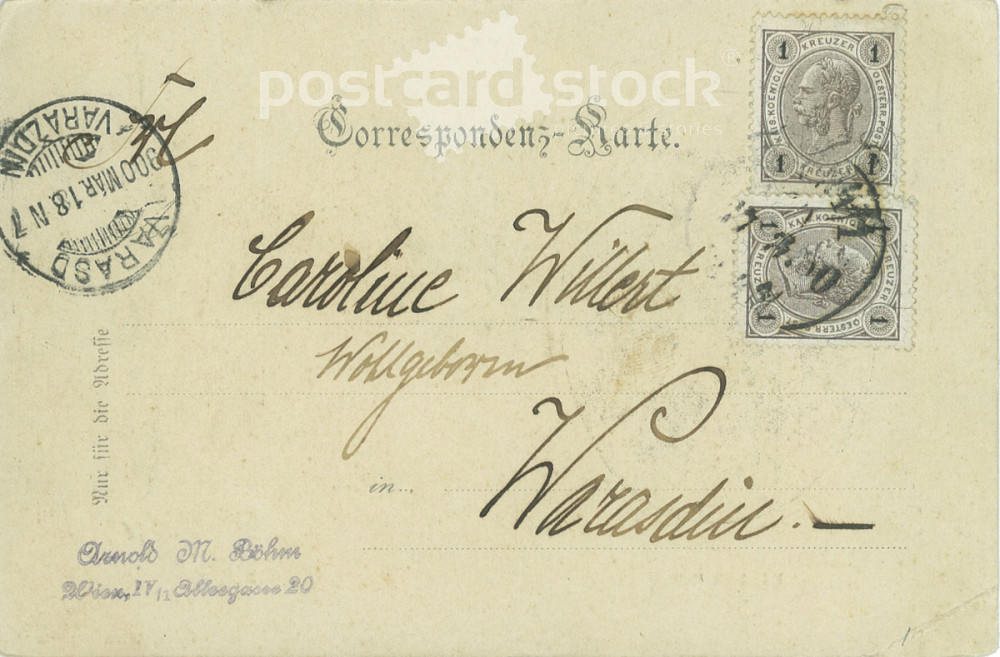 postcard stock
Correspondenz-Karte.
1 KREUZER 1
KAIS. KOENIGL. OESTERR. POST
1 KREUZER 1
VARAŽDIN
900 MÁR. 18. N 7
VARASD
Caroline Willert
Wollgeboren
in...
Warasdin. —
Nur für die Adresse
Arnold M. Böhm
Wien, IV/1
20